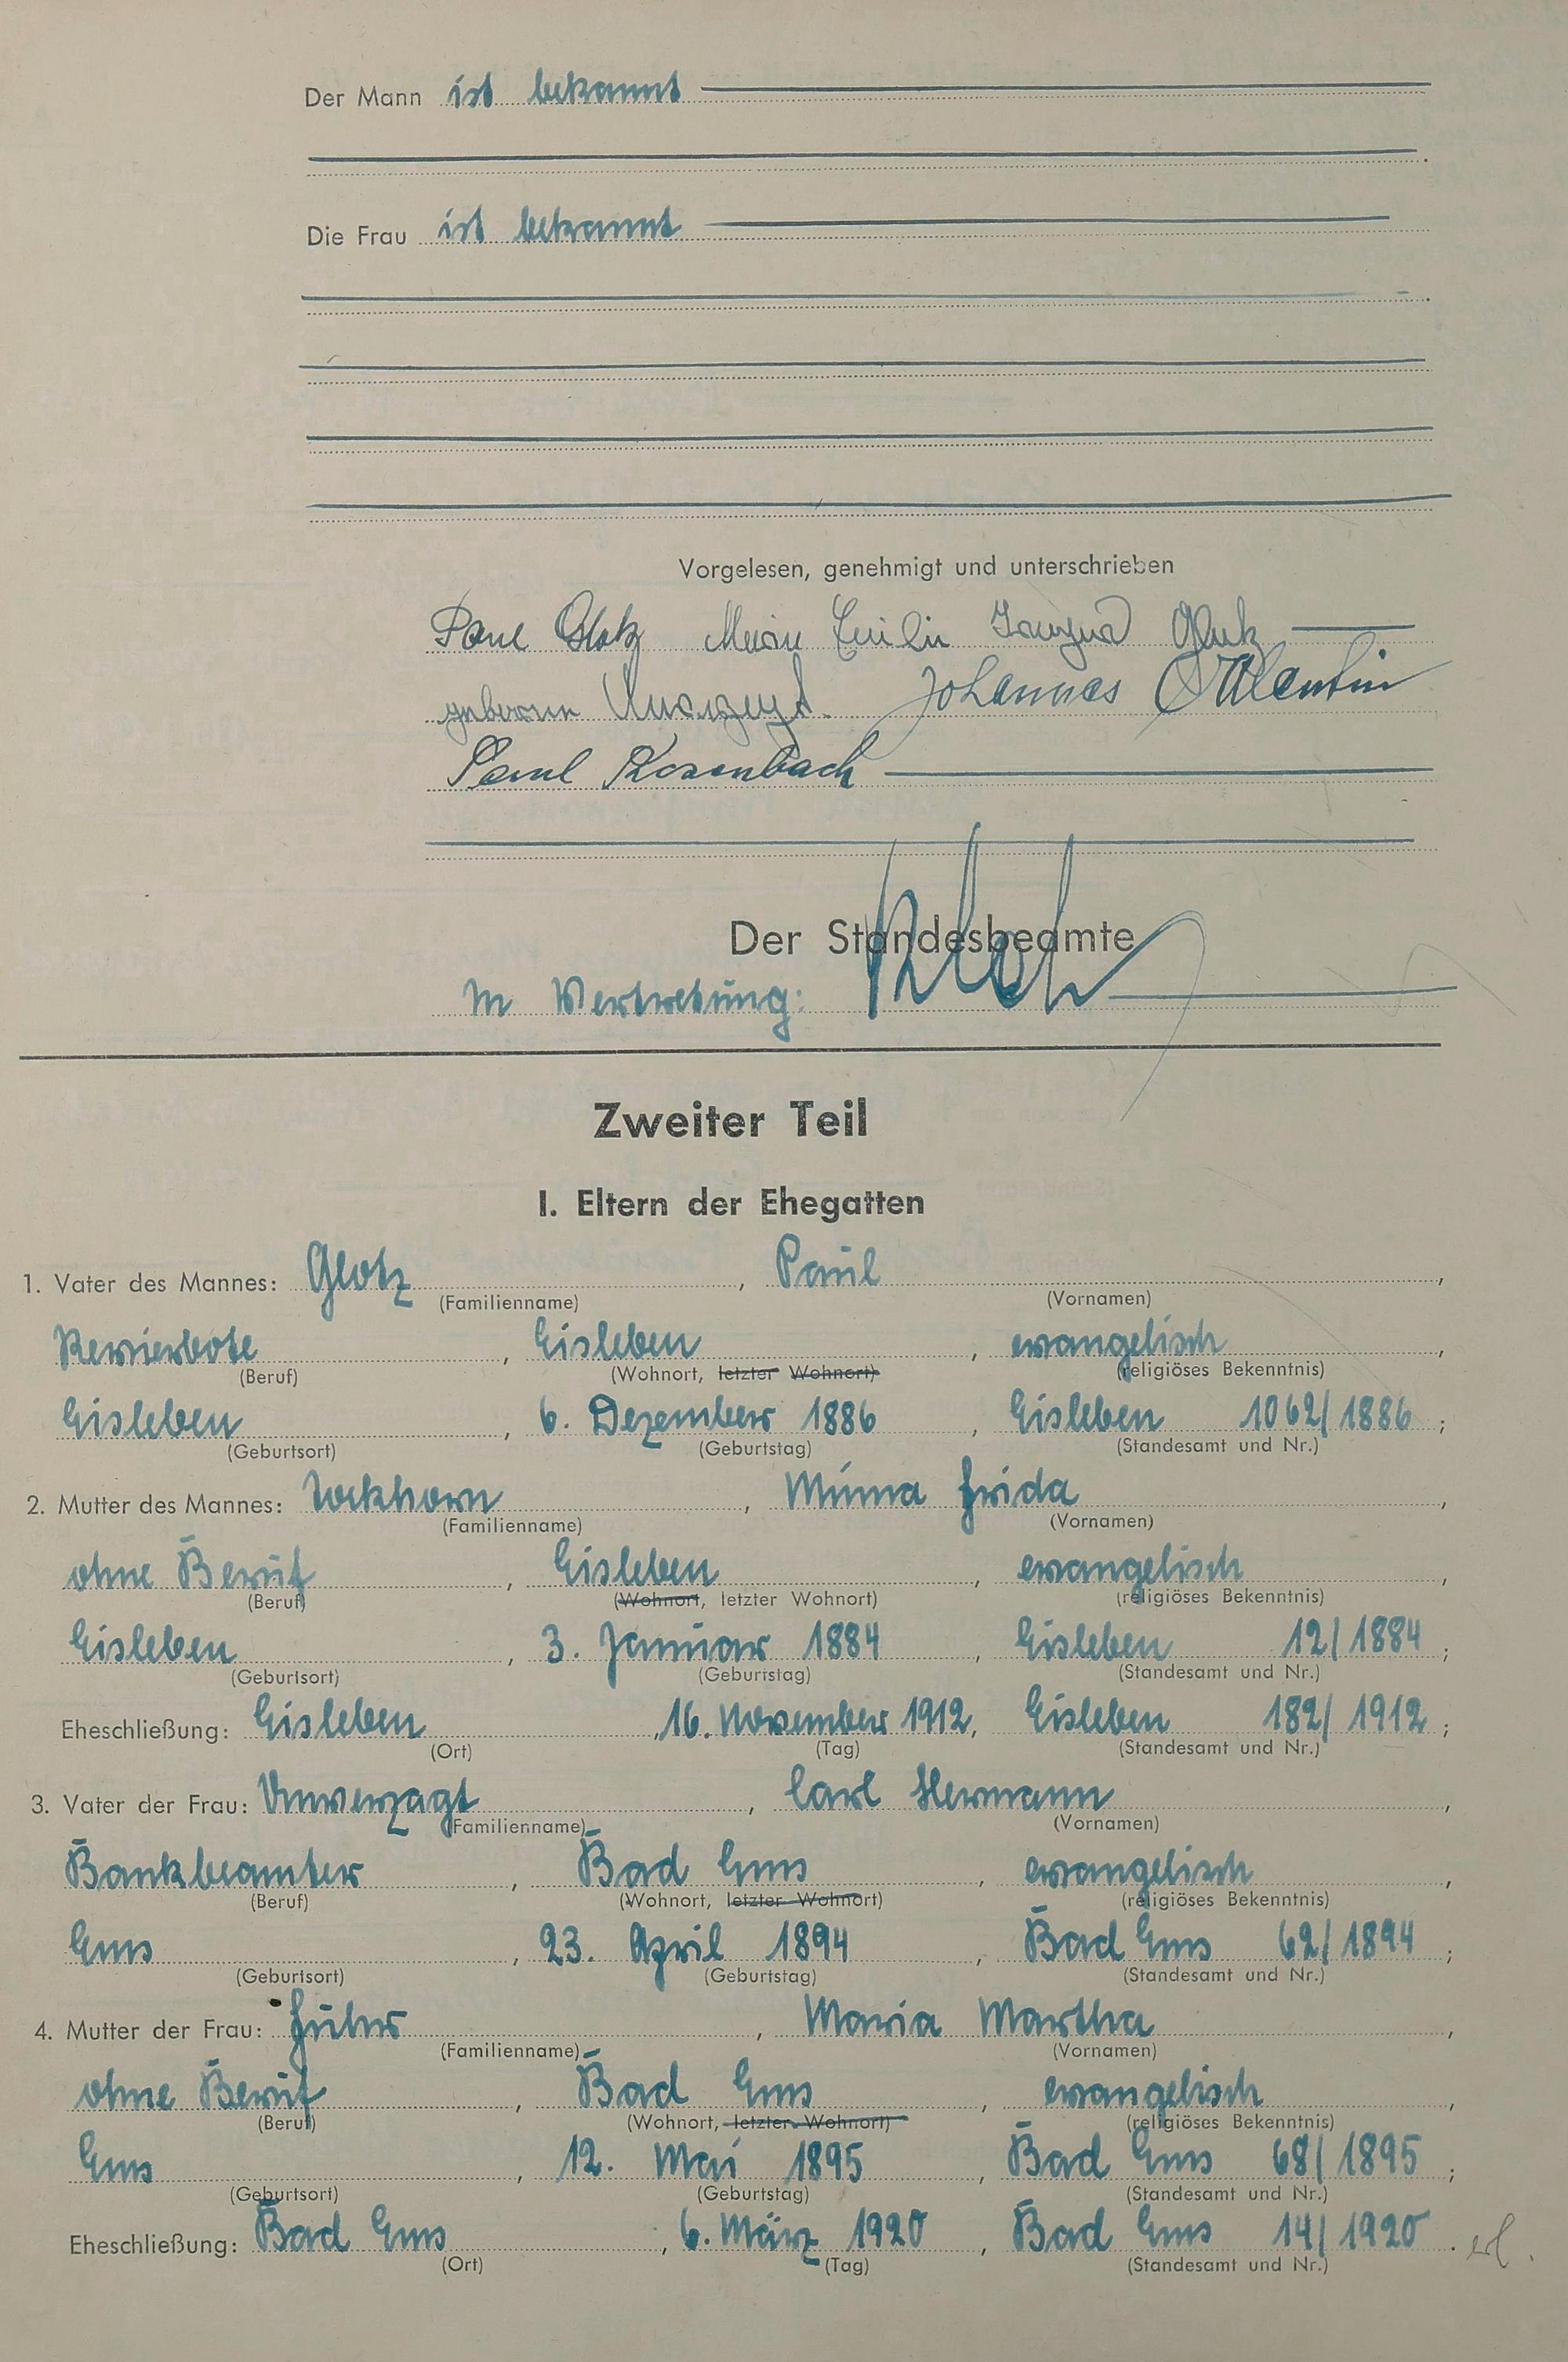 Der Mann ist bekannt
Die Frau ist bekannt
Vorgelesen, genehmigt und unterschrieben
Paul Glotz Marie Emilie Irmgard Glotz
geborene Unverzagt. Johannes Valentin
Paul Rosenbach
Der Standesbeamte
In Vertretung:
Zweiter Teil
I. Eltern der Ehegatten
1. Vater des Mannes: Glotz, Paul,
(Familienname) (Vornamen)
Revierbote, Eisleben, evangelisch,
(Beruf) (Wohnort, letzter Wohnort) (religiöses Bekenntnis)
Eisleben, 6. Dezember 1886, Eisleben 1062/1886;
(Geburtsort) (Geburtstag) (Standesamt und Nr.)
2. Mutter des Mannes: Tockhorn, Minna Frida,
(Familienname) (Vornamen)
ohne Beruf, Eisleben, evangelisch,
(Beruf) (Wohnort, letzter Wohnort) (religiöses Bekenntnis)
Eisleben, 3. Januar 1884, Eisleben 12/1884;
(Geburtsort) (Geburtstag) (Standesamt und Nr.)
Eheschließung: Eisleben, 16. November 1912, Eisleben 182/1912;
(Ort) (Tag) (Standesamt und Nr.)
3. Vater der Frau: Unverzagt, Carl Hermann,
(Familienname) (Vornamen)
Bankbeamter, Bad Ems, evangelisch,
(Beruf) (Wohnort, letzter Wohnort) (religiöses Bekenntnis)
Ems, 23. April 1894, Bad Ems 62/1894;
(Geburtsort) (Geburtstag) (Standesamt und Nr.)
4. Mutter der Frau: Maria Martha,
(Familienname) (Vornamen)
ohne Beruf, Bad Ems, evangelisch,
(Beruf) (Wohnort, letzter Wohnort) (religiöses Bekenntnis)
Ems, 12. Mai 1895, Bad Ems 68/1895;
(Geburtsort) (Geburtstag) (Standesamt und Nr.)
Eheschließung: Bad Ems, 6. März 1920, Bad Ems 14/1920. erl.
(Ort) (Tag) (Standesamt und Nr.)